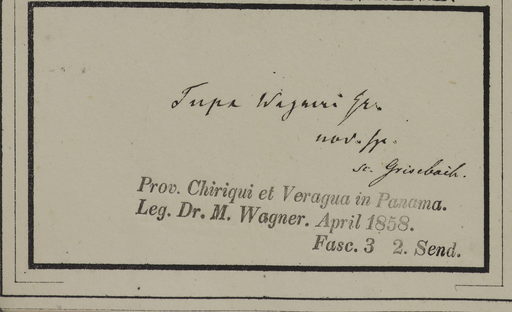 Tupa Wagneri Gr.
nov. sp.
sc. Grisebach.
Prov. Chiriqui et Veragua in Panama.
Leg. Dr. M. Wagner. April 1858.
Fasc. 3 2. Send.